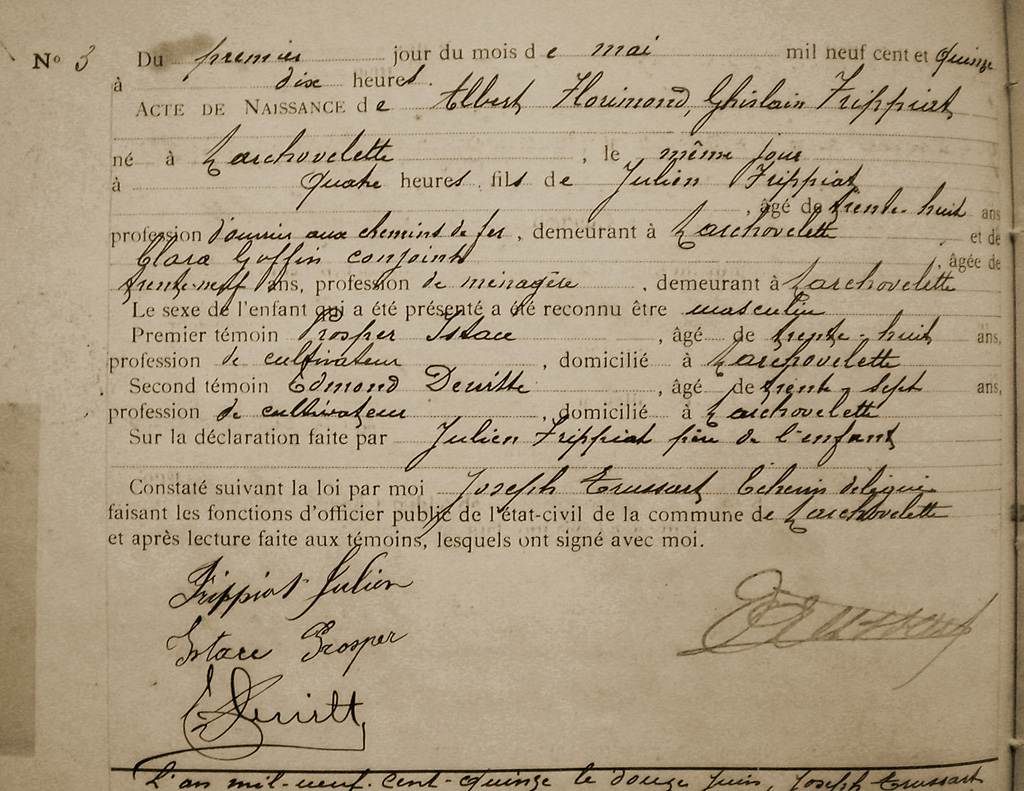 N° 3 Du premier jour du mois de mai mil neuf cent et quinze
à dix heures.
ACTE DE NAISSANCE de Albert Florimond, Ghislain Frippiat
né à Marchovelette, le même jour
à quatre heures, fils de Julien Frippiat
, âgé de trente-huit ans
profession d'ouvrier aux chemins de fer, demeurant à Marchovelette et de
Clara Goffin conjoints, âgée de
trente-neuf ans, profession de ménagère, demeurant à Marchovelette
Le sexe de l'enfant qui a été présenté a été reconnu être masculin
Premier témoin Prosper Istace, âgé de trente-huit ans,
profession de cultivateur, domicilié à Marchovelette
Second témoin Edmond Dewitte, âgé de trente-sept ans,
profession de cultivateur, domicilié à Marchovelette
Sur la déclaration faite par Julien Frippiat père de l'enfant
Constaté suivant la loi par moi Joseph Trussart Echevin délégué
faisant les fonctions d'officier public de l'état-civil de la commune de Marchovelette
et après lecture faite aux témoins, lesquels ont signé avec moi.
Frippiat Julien
JTrussart
Istace Prosper
E Dewitte
L'an mil-neuf-cent-quinze le douze juin, Joseph Trussart